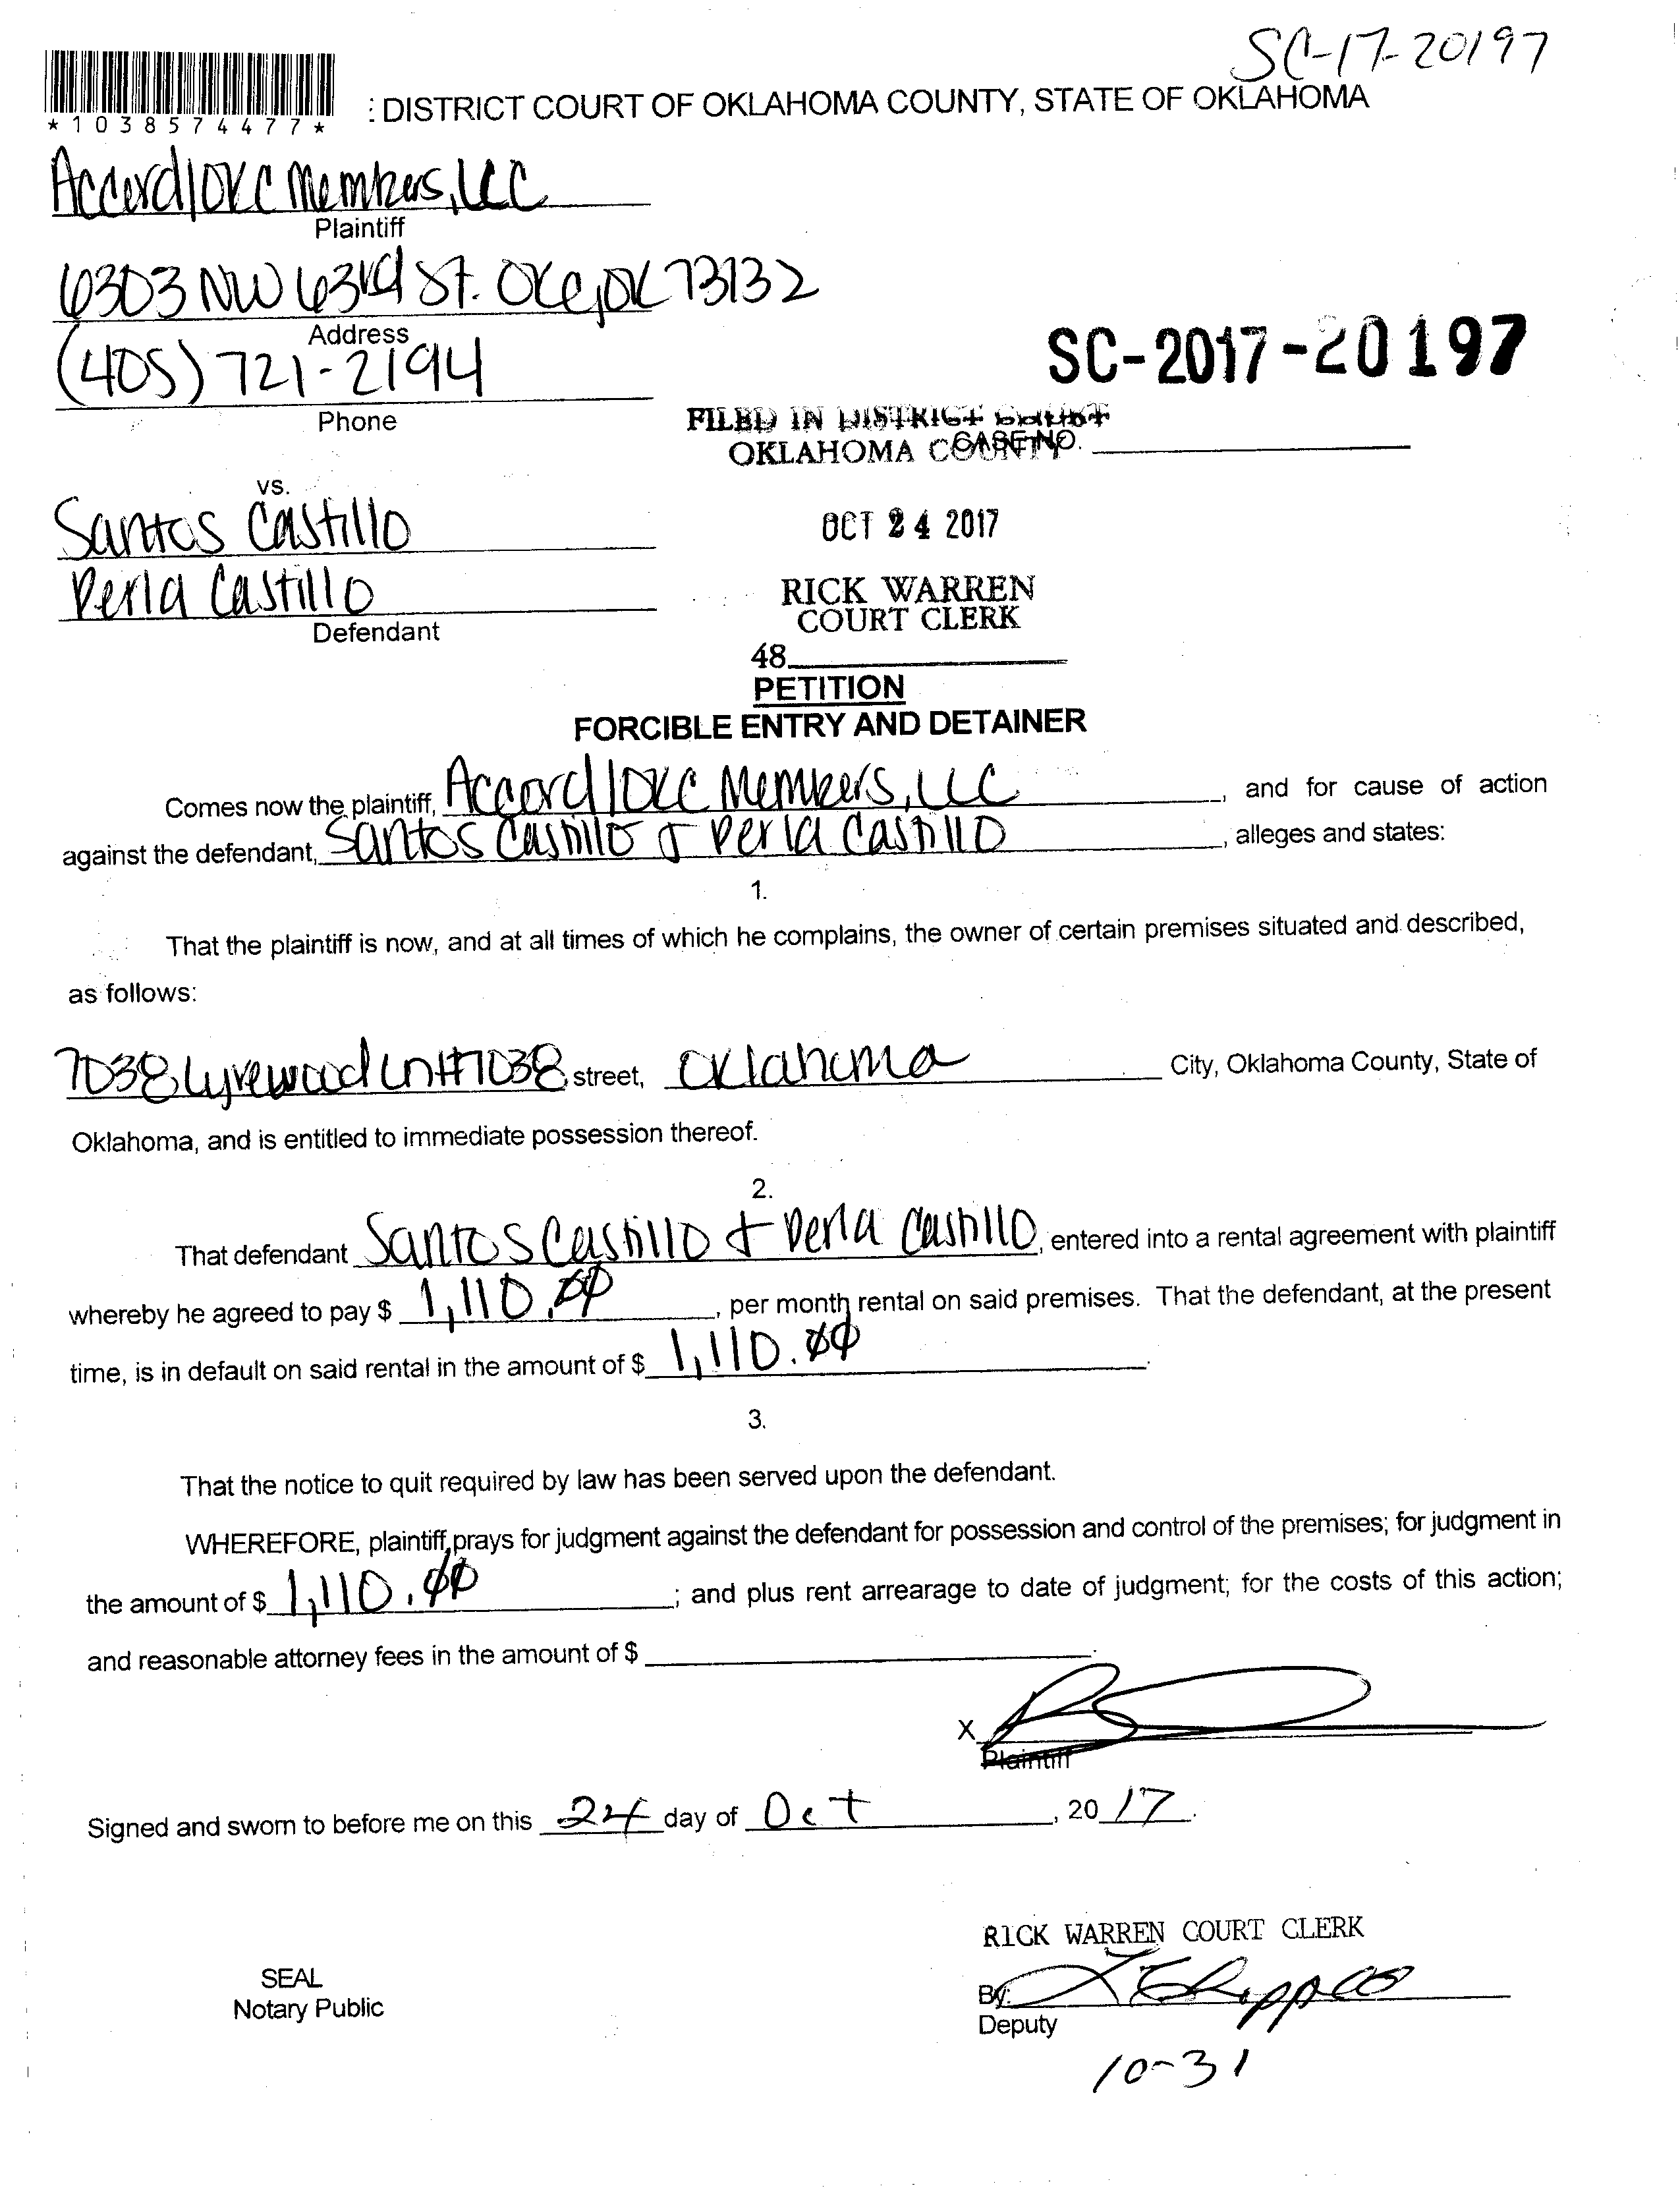 SC-17-20197
*1038574477*
: DISTRICT COURT OF OKLAHOMA COUNTY, STATE OF OKLAHOMA
Accord/OKC Members, LLC
Plaintiff
6303 NW 63rd St. OKC, OK 73132
Address
(405) 721-2194
Phone
SC-2017-20197
FILED IN DISTRICT COURT
OKLAHOMA COUNTY
CASE NO.
vs.
Santos Castillo
Perla Castillo
Defendant
OCT 24 2017
RICK WARREN
COURT CLERK
48
PETITION
FORCIBLE ENTRY AND DETAINER
Comes now the plaintiff, Accord/OKC Members, LLC, and for cause of action
against the defendant, Santos Castillo & Perla Castillo, alleges and states:
1.
That the plaintiff is now, and at all times of which he complains, the owner of certain premises situated and described,
as follows:
7038 Lyrewood Ln #7038 street, Oklahoma City, Oklahoma County, State of
Oklahoma, and is entitled to immediate possession thereof.
2.
That defendant Santos Castillo & Perla Castillo, entered into a rental agreement with plaintiff
whereby he agreed to pay $ 1,110.00, per month rental on said premises. That the defendant, at the present
time, is in default on said rental in the amount of $ 1,110.00.
3.
That the notice to quit required by law has been served upon the defendant.
WHEREFORE, plaintiff, prays for judgment against the defendant for possession and control of the premises; for judgment in
the amount of $ 1,110.00; and plus rent arrearage to date of judgment; for the costs of this action;
and reasonable attorney fees in the amount of $ .
X
Plaintiff
Signed and sworn to before me on this 24 day of Oct, 2017.
RICK WARREN COURT CLERK
SEAL
Notary Public
By:
Deputy
10-31